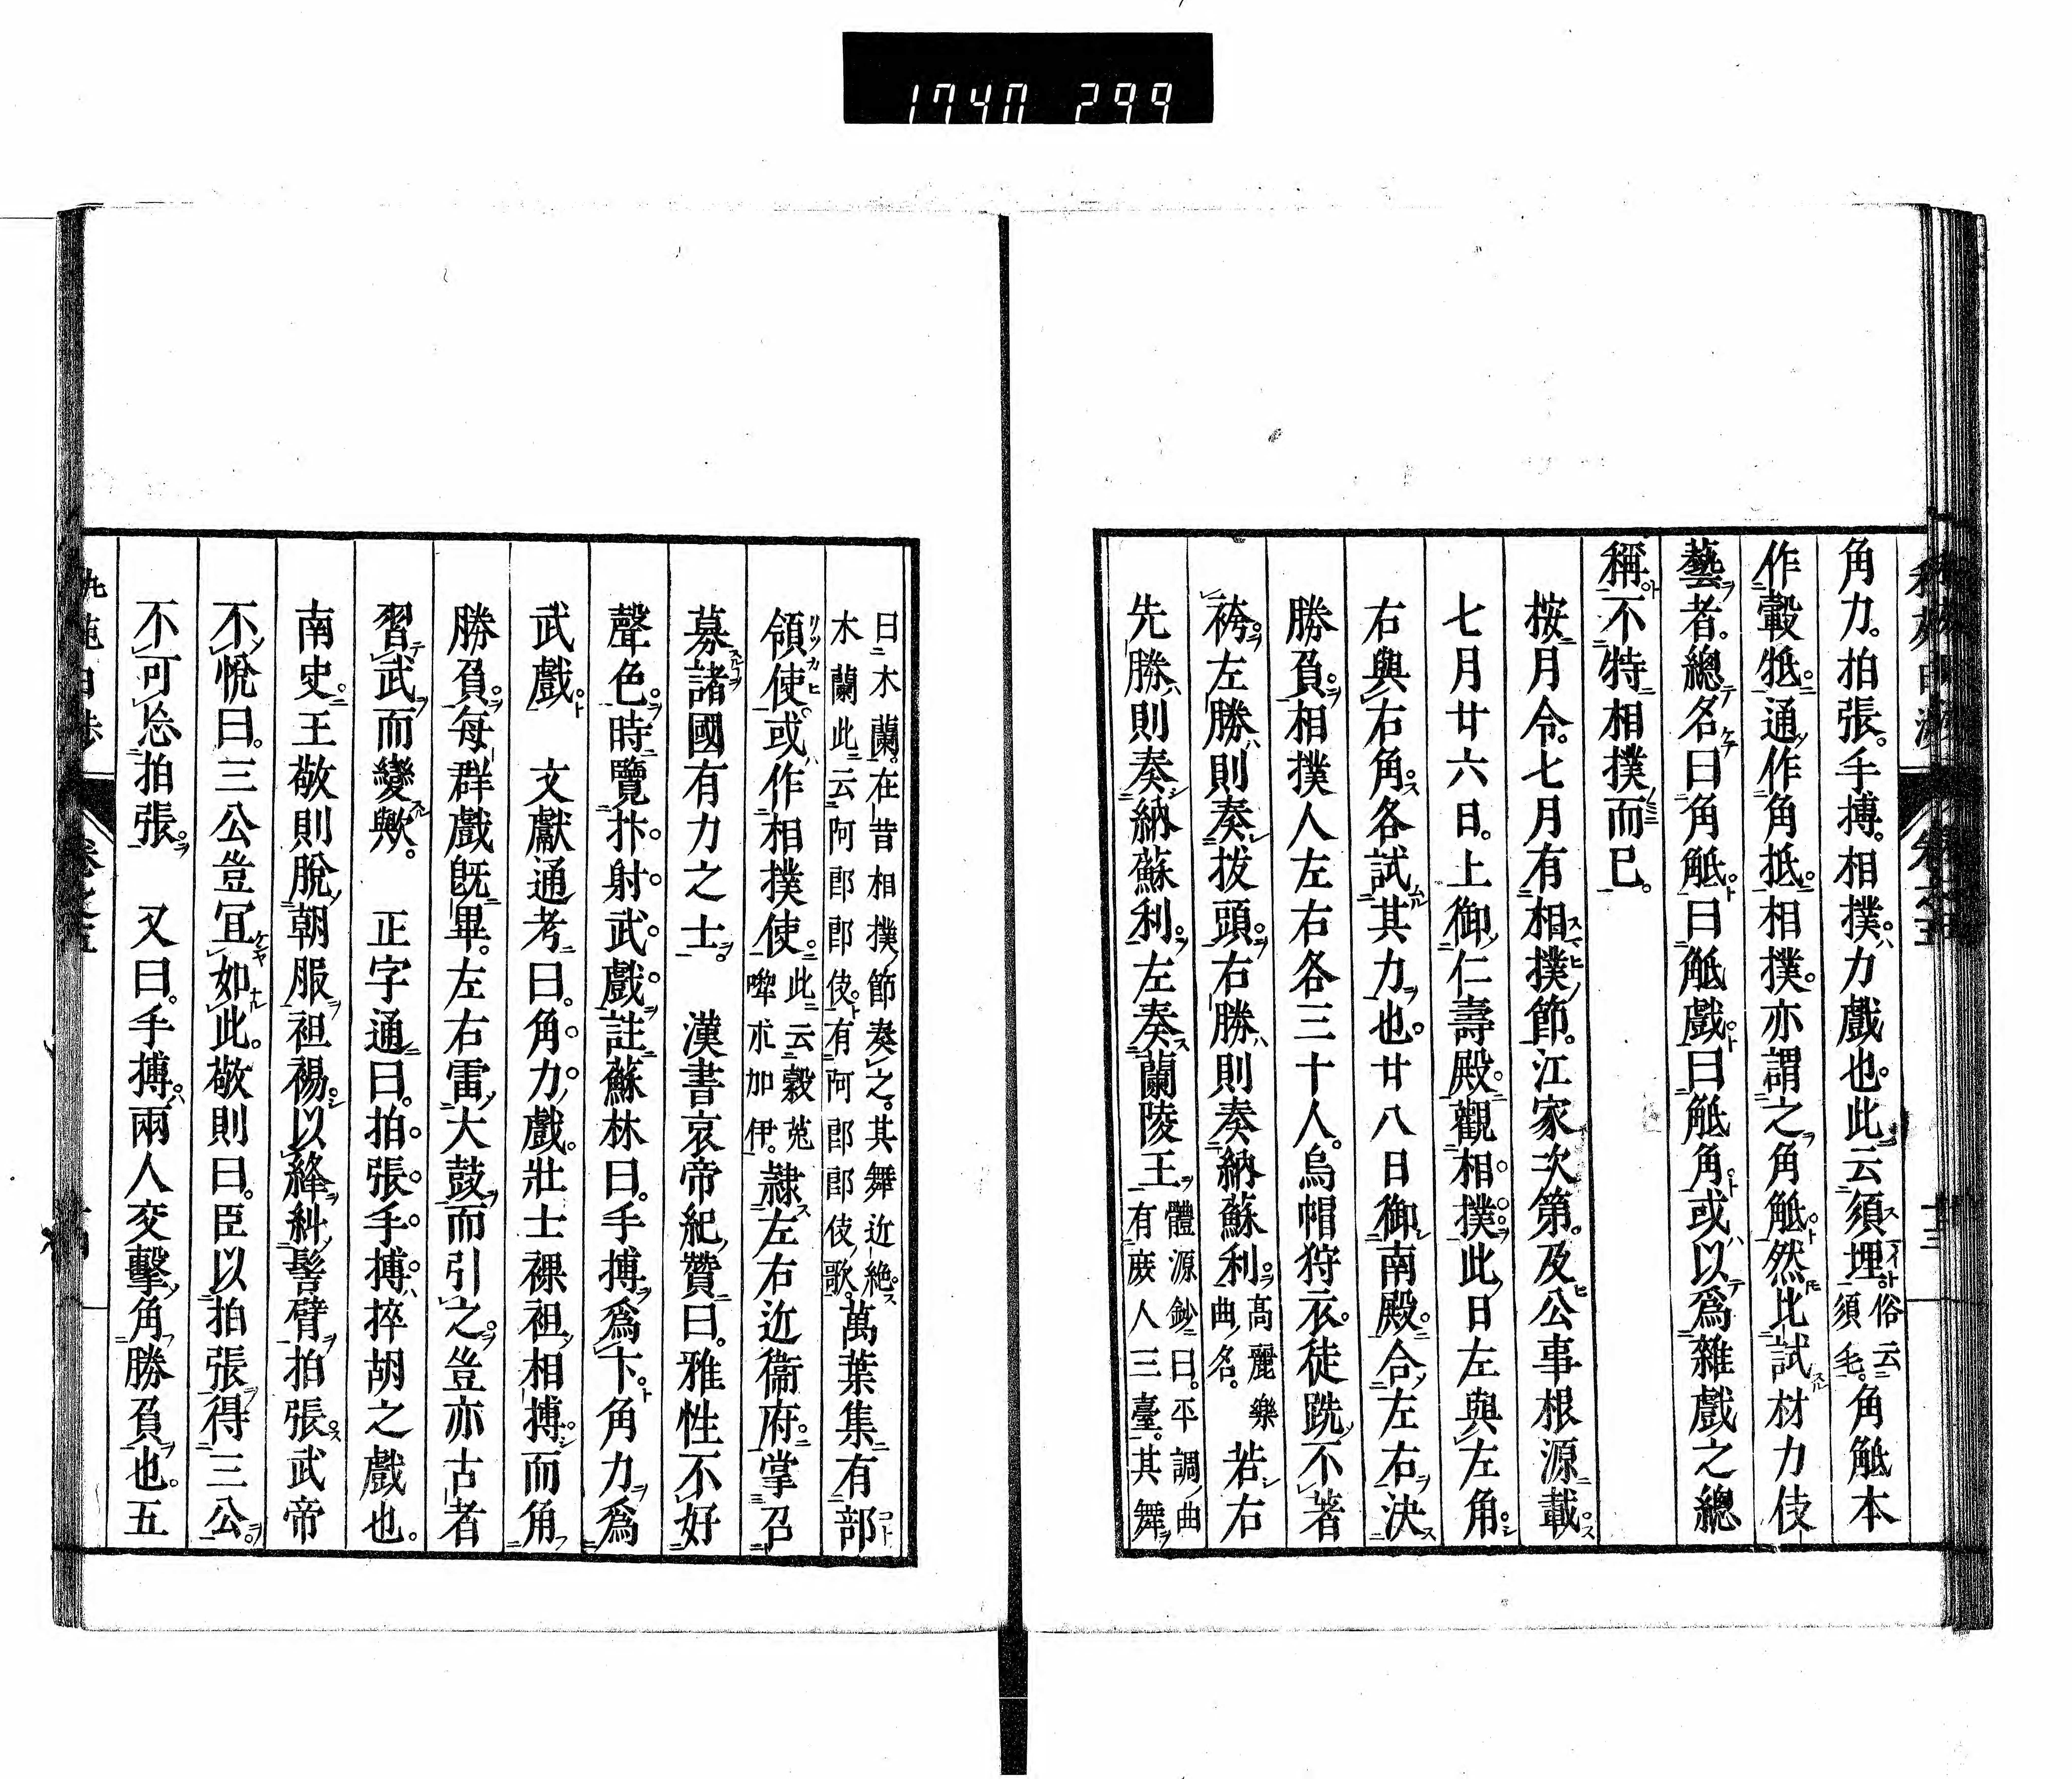 1747 299
角力。拍張。手搏。相撲。力戲也。此云須埋俗云須毛。角觝本
作觳牴。通作角抵。相撲。亦謂之角觝。然比試材力伎
藝者。總名曰角觝。曰觝戲。曰觝角。或以爲雜戲之總
稱。不特相撲而已。
按月令。七月有相撲節。江家次第。及公事根源載。
七月廿六日。上御仁壽殿。觀相撲。此日左與左角。
右與右角。各試其力也。廿八日御南殿。合左右決
勝負。相撲人左右各三十人。烏帽狩衣。徒跣不著
袴。左勝則奏拔頭。右勝則奏納蘇利。高麗樂曲名。若右
先勝則奏納蘇利。左奏蘭陵王。體源鈔曰。平調曲有庻人三臺。其舞
曰木蘭。在昔相撲節奏之。其舞近絶。木蘭此云阿郎郎伎。有阿郎郎伎歌。萬葉集有部
領使。或作相撲使。此云穀菟喫朮加伊。隷左右近衞府。掌召
募諸國有力之士。 漢書哀帝紀贊曰。雅性不好
聲色。時覽抃射武戲。註蘇林曰。手搏爲卞角力爲
武戲。 文獻通考曰。角力戲。壯士裸袒相搏而角
勝負。每群戲旣畢。左右雷大鼓而引之。豈亦古者
習武而變歟。 正字通曰。拍張手搏。捽胡之戲也。
南史。王敬則脫朝服袒裼。以絳糾髻臂拍張。武帝
不悅曰。三公豈宜如此。敬則曰。臣以拍張得三公。
不可忘拍張。 又曰。手搏。兩人交擊角勝負也。五
卷之五
十三